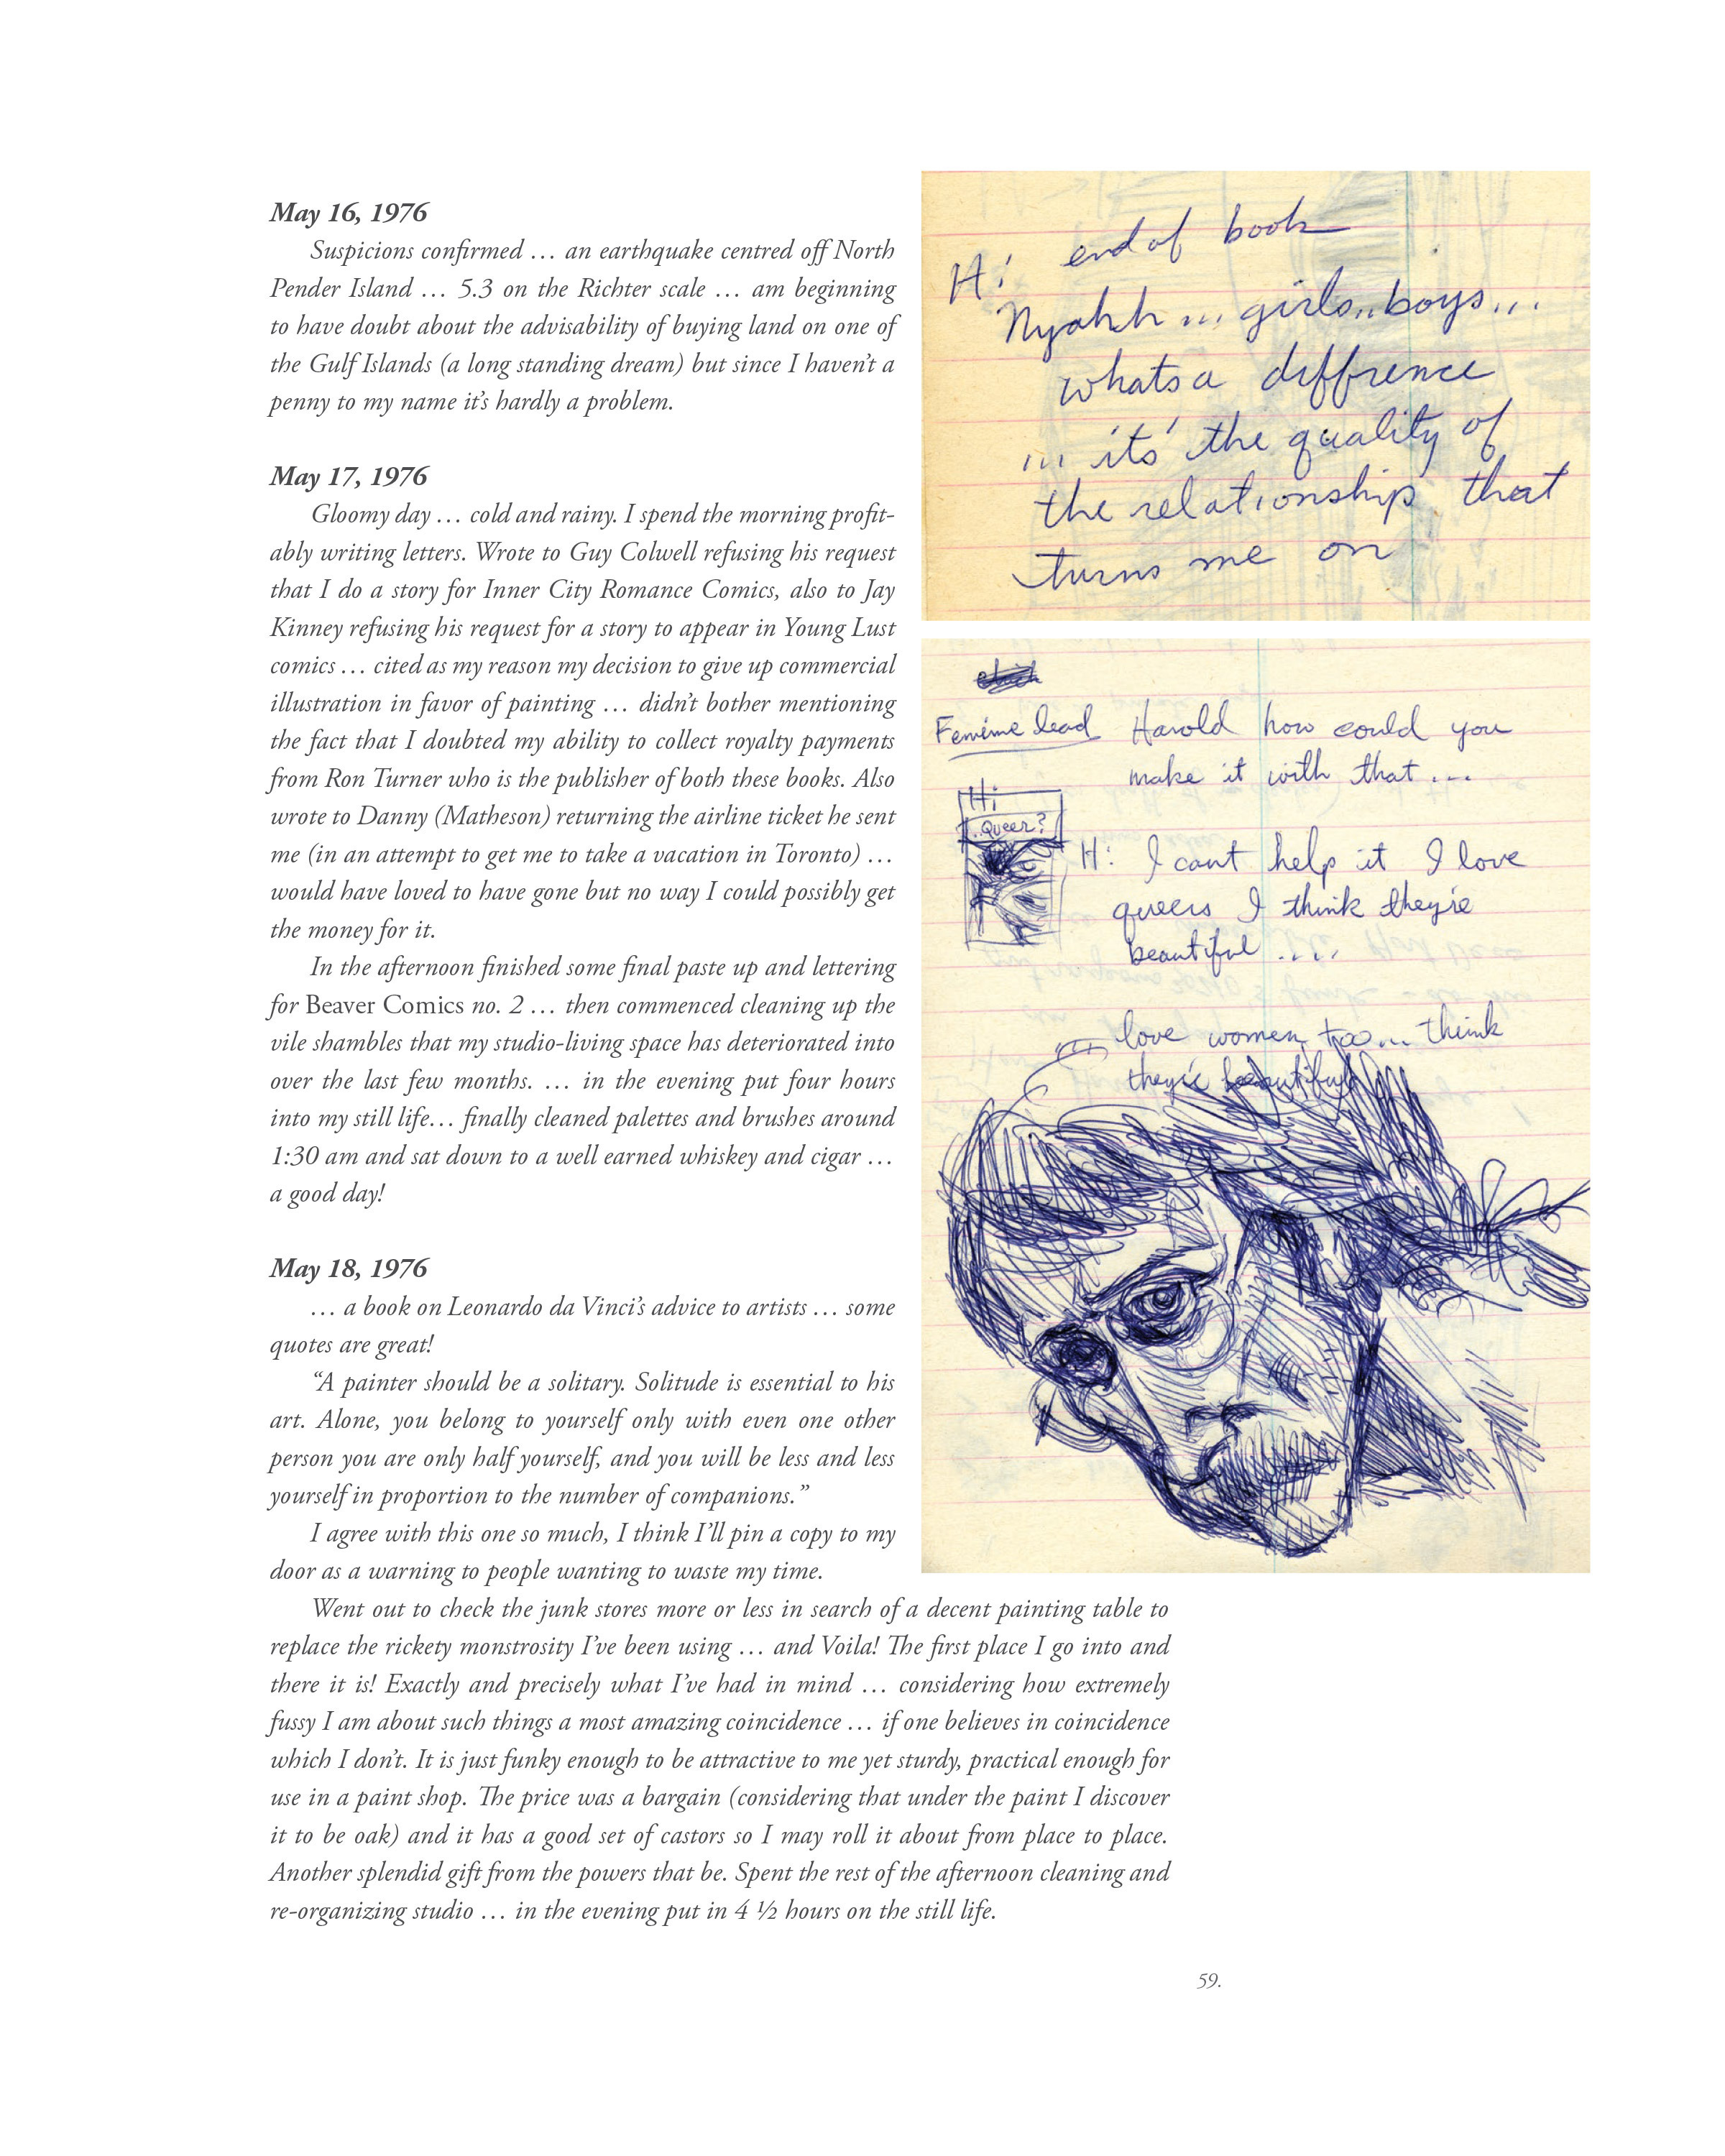 May 16, 1976
Suspicions confirmed … an earthquake centred off North
Pender Island … 5.3 on the Richter scale … am beginning
to have doubt about the advisability of buying land on one of
the Gulf Islands (a long standing dream) but since I haven’t a
penny to my name it’s hardly a problem.
May 17, 1976
Gloomy day … cold and rainy. I spend the morning profit-
ably writing letters. Wrote to Guy Colwell refusing his request
that I do a story for Inner City Romance Comics, also to Jay
Kinney refusing his request for a story to appear in Young Lust
comics … cited as my reason my decision to give up commercial
illustration in favor of painting … didn’t bother mentioning
the fact that I doubted my ability to collect royalty payments
from Ron Turner who is the publisher of both these books. Also
wrote to Danny (Matheson) returning the airline ticket he sent
me (in an attempt to get me to take a vacation in Toronto) …
would have loved to have gone but no way I could possibly get
the money for it.
In the afternoon finished some final paste up and lettering
for Beaver Comics no. 2 … then commenced cleaning up the
vile shambles that my studio-living space has deteriorated into
over the last few months. … in the evening put four hours
into my still life… finally cleaned palettes and brushes around
1:30 am and sat down to a well earned whiskey and cigar …
a good day!
May 18, 1976
… a book on Leonardo da Vinci’s advice to artists … some
quotes are great!
“A painter should be a solitary. Solitude is essential to his
art. Alone, you belong to yourself only with even one other
person you are only half yourself, and you will be less and less
yourself in proportion to the number of companions.”
I agree with this one so much, I think I’ll pin a copy to my
door as a warning to people wanting to waste my time.
Went out to check the junk stores more or less in search of a decent painting table to
replace the rickety monstrosity I’ve been using … and Voila! The first place I go into and
there it is! Exactly and precisely what I’ve had in mind … considering how extremely
fussy I am about such things a most amazing coincidence … if one believes in coincidence
which I don’t. It is just funky enough to be attractive to me yet sturdy, practical enough for
use in a paint shop. The price was a bargain (considering that under the paint I discover
it to be oak) and it has a good set of castors so I may roll it about from place to place.
Another splendid gift from the powers that be. Spent the rest of the afternoon cleaning and
re-organizing studio … in the evening put in 4 ½ hours on the still life.
end of book
H:
Nyahh ... girls..boys...
whats a diffrence
... its' the quality of
the relationship that
turns me on
Femime lead Harold how could you
make it with that ...
Hi
..queer?
H: I cant help it I love
queers I think they're
beautiful ....
... love women too... think
they're beautiful
59.